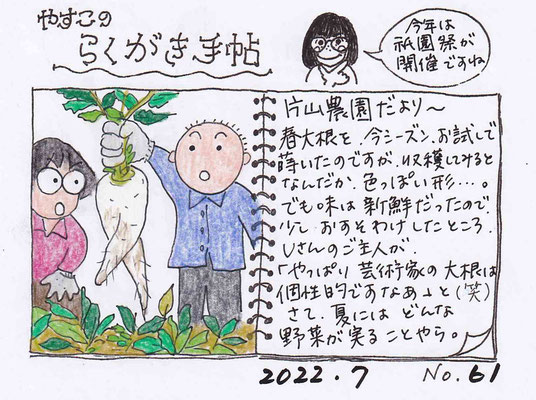 やすこの
らくがき手帖
今年は
祇園祭が
開催ですね
片山農園だより〜
春大根を、今シーズン、お試しで
蒔いたのですが、収穫してみると
なんだか、色っぽい形…。
でも味は新鮮だったので、
少し おすそわけしたところ、
Uさんのご主人が、
「やっぱり 芸術家の大根は
個性的ですなあ」と(笑)
さて、夏には どんな
野菜が実ることやら。
2022.7 No.61